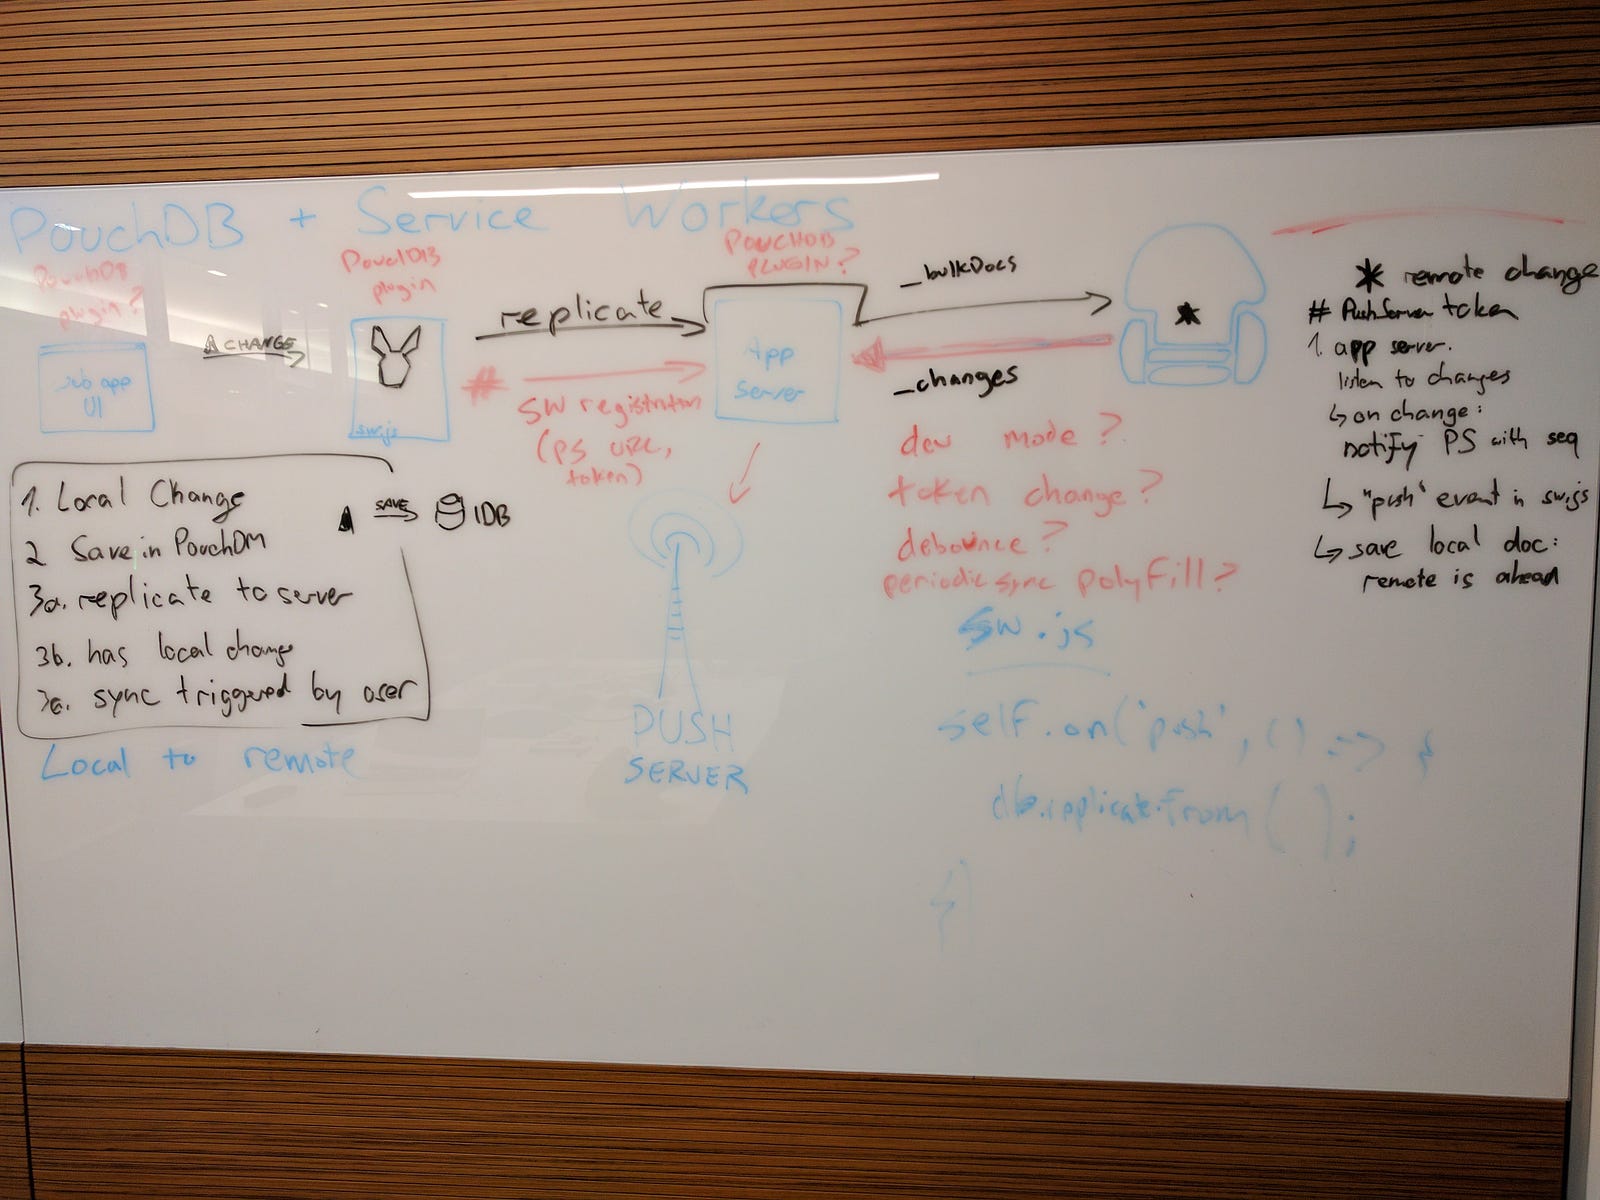 PouchDB + Service Workers
PouchDB
plugin?
web app
UI
A CHANGE
PouchDB
plugin
sw.js
replicate
#
SW registration
(PS URL,
token)
POUCHDB
PLUGIN?
App
Server
_bulkDocs
_changes
* remote change
# PushServer token
1. app server.
listen to changes
↳ on change:
notify PS with seq
↳ "push" event in sw.js
↳ save local doc:
remote is ahead
1. Local Change
2 Save in PouchDM
3a. replicate to server
3b. has local change
3a. sync triggered by user
Local to remote
A SAVE IDB
PUSH
SERVER
dev mode?
token change?
debounce?
periodic sync polyfill?
sw.js
self.on('push', () => {
db.replicate.from( );
}